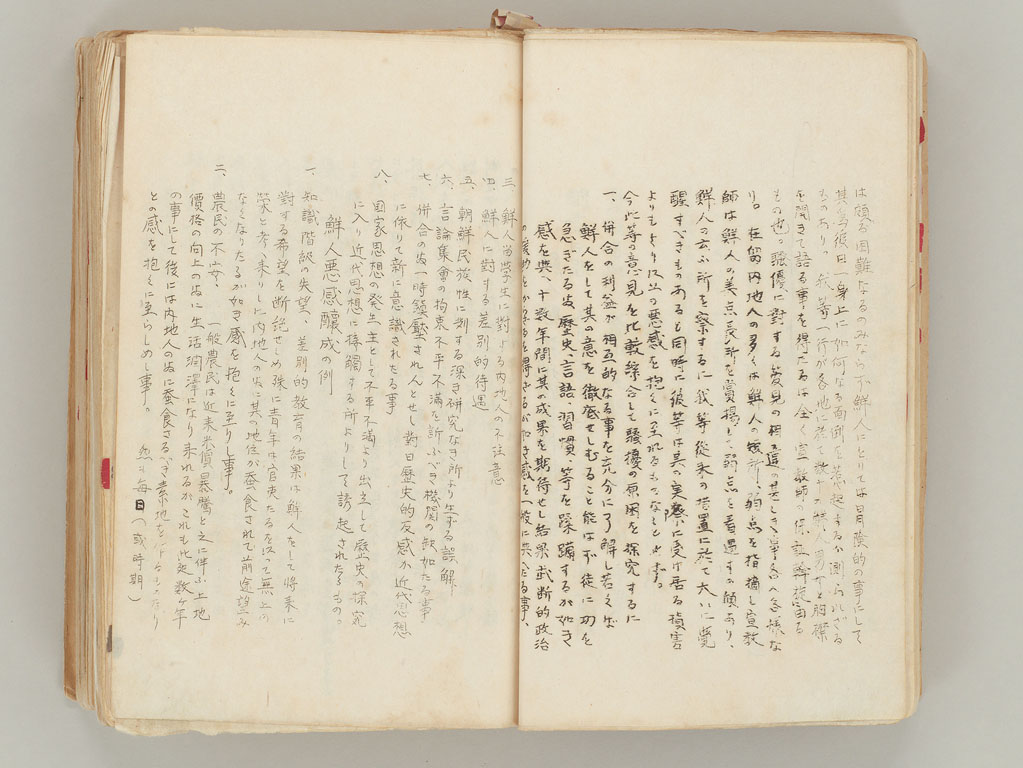 は頗る困難なるのみならず鮮人にとりては冒険的の事にして
其為後日一身上に如何なる面倒を惹起するか測られざる
ものあり。我等一行が各地に於て数十の鮮人男女と胸襟
を開きて語る事を得たるは全く宣教師の保証斡旋による
もの也。騒擾に対する意見の相違の甚しき事
り。在留内地人の多くは鮮人の短所、弱点を指摘し宣教
師は鮮人の美点長所を賞揚して弱点を看過する傾あり、
鮮人の云ふ所を察するに我等従来の措置に於て大いに覚
醒すべきものあると同時に彼等は其の実際に受け居る損害
よりもより以上の悪感を抱くに至れるものなるとす。
今此等の意見を比較綜合して騒擾の原因を探究するに
一、併合の利益が相互的なる事を充分に了解し若くば
鮮人をして其の意を徹底せしむること能はず徒に功を
急ぎたる為歴史、言語、習慣、等を蹂躙するが如き
感を与へ十数年間に其の成果を期待せし結果武断的政治
三、鮮人留学生に対する内地人の不注意
四、鮮人に対する差別的待遇
五、朝鮮民族性に対する深き研究なき所より生ずる誤解
六、言論集会の拘束不平不満を訴ふべき機関の欠如たる事
七、併合の為一時鎮圧され人とせし対日歴史的反感が近代思想
に依りて新に意識されたる事
八、国家思想の発生主として不平不満より出立して歴史の探究
に入り近代思想に接触する所よりして誘起されたるもの。
鮮人悪感醸成の例
一、知識階級の失望、差別的教育の結果は鮮人をして将来に
対する希望を断絶せしめ殊に青年は官吏たるを以て無上の
栄と考へ来りしに内地人の為に其の地位が蚕食されて前途望み
なくなりたるが如き感を抱くに至りし事。
二、農民の不安、一般農民は近来米価暴騰と之に伴ふ土地
価格の向上の為に生活潤沢になり来れるがこれも此処数ヶ年
の事にして後には内地人の為に蚕食さるべき素地を
との感を抱くに至らしめし事。
然も毎日(或時期)